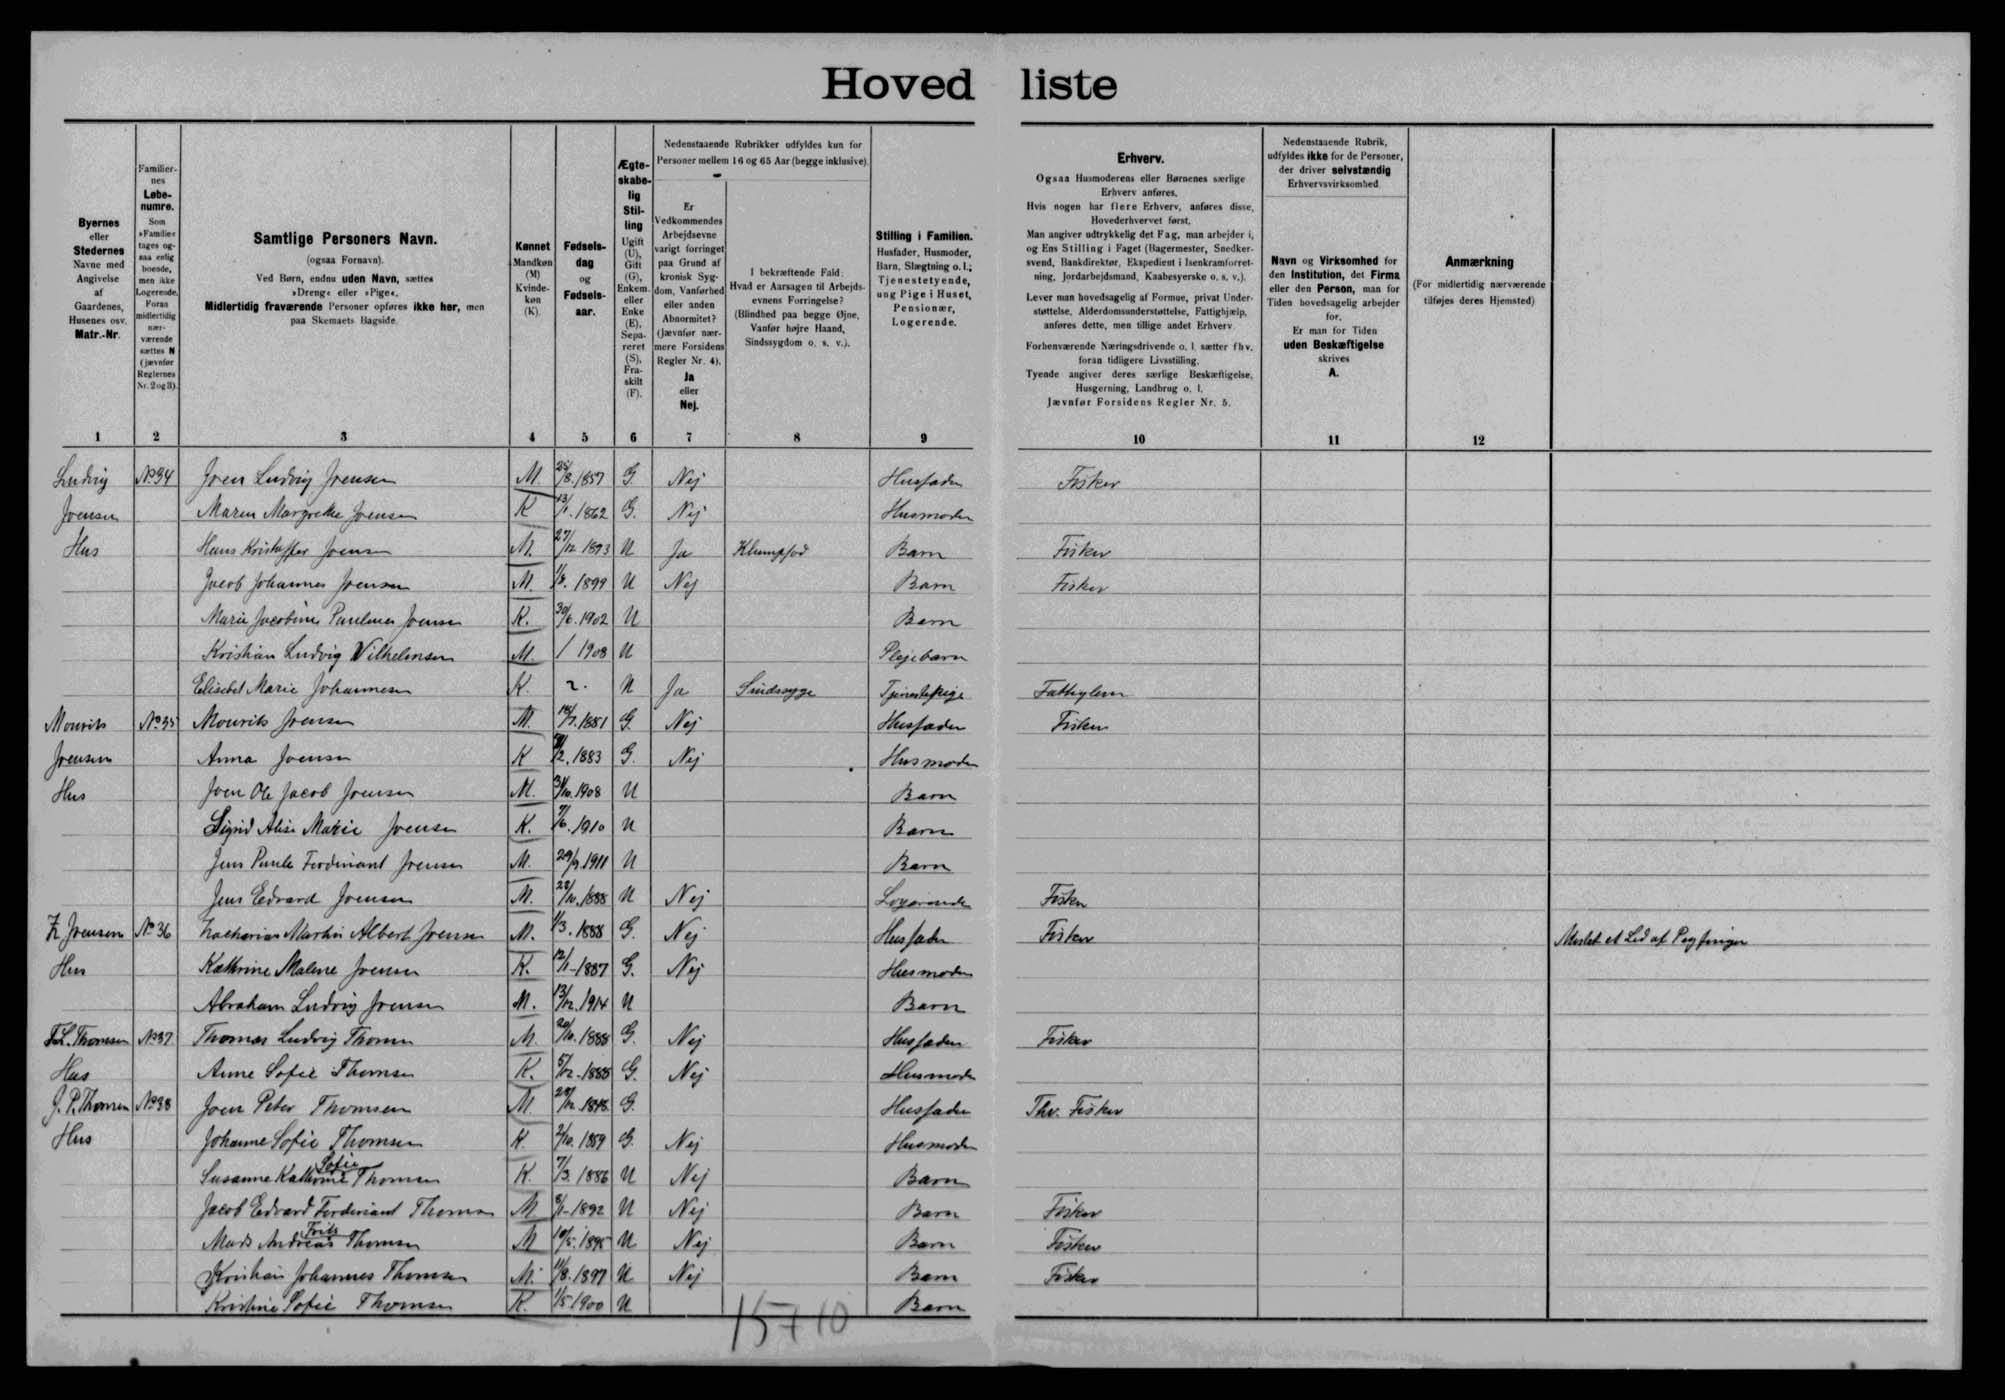 Hovedliste
Byernes eller Stedernes Navne med Angivelse af Gaardenes, Husenes osv. Matr.-Nr.
Familiernes Løbenumre. Som »Familie« tages ogsaa enlig boende, men ikke Logerende. Foran midlertidig nærværende sættes N (jævnfør Reglernes Nr. 2 og 3).
Samtlige Personers Navn.
(ogsaa Fornavn).
Ved Børn, endnu uden Navn, sættes
»Dreng« eller »Pige«.
Midlertidig fraværende Personer opføres ikke her, men
paa Skemaets Bagside.
Kønnet Mandkøn (M) Kvindekøn (K).
Fødselsdag og Fødselsaar.
Ægteskabelig Stilling Ugift (U), Gift (G), Enkem. eller Enke (E), Separeret (S), Fraskilt (F).
Nedenstaaende Rubrikker udfyldes kun for
Personer mellem 16 og 65 Aar (begge inklusive).
Er Vedkommendes Arbejdsevne varigt forringet paa Grund af kronisk Sygdom, Vanførhed eller anden Abnormitet? (Jævnfør nærmere Forsidens Regler Nr. 4). Ja eller Nej.
I bekræftende Fald: Hvad er Aarsagen til Arbejdsevnens Forringelse? (Blindhed paa begge Øjne, Vanfør højre Haand, Sindssygdom o. s. v.).
Stilling i Familien.
Husfader, Husmoder,
Barn, Slægtning o. l.;
Tjenestetyende,
ung Pige i Huset,
Pensionær,
Logerende.
Erhverv.
Ogsaa Husmoderens eller Børnenes særlige
Erhverv anføres.
Hvis nogen har flere Erhverv, anføres disse,
Hovederhvervet først.
Man angiver udtrykkelig det Fag, man arbejder i,
og Ens Stilling i Faget (Bagermester, Snedkersvend, Bankdirektør, Ekspedient i Isenkramforretning, Jordarbejdsmand, Kaabesyerske o. s. v.).
Lever man hovedsagelig af Formue, privat Understøttelse, Alderdomsunderstøttelse, Fattighjælp,
anføres dette, men tillige andet Erhverv.
Forhenværende Næringsdrivende o. l. sætter fhv.
foran tidligere Livsstilling.
Tyende angiver deres særlige Beskæftigelse,
Husgerning, Landbrug o. l.
Jævnfør Forsidens Regler Nr. 5.
Nedenstaaende Rubrik,
udfyldes ikke for de Personer,
der driver selvstændig
Erhvervsvirksomhed
Navn og Virksomhed for
den Institution, det Firma
eller den Person, man for
Tiden hovedsagelig arbejder
for.
Er man for Tiden
uden Beskæftigelse
skrives
A.
Anmærkning
(For midlertidig nærværende
tilføjes deres Hjemsted)
1 2 3 4 5 6 7 8 9 10 11 12
Ludvig No 34 Joen Ludvig Joensen M. 25/8. 1857 G. Nej Husfader Fisker
Joensen Maren Margrethe Joensen K 13/1. 1862 G. Nej Husmoder
Hus Hans Kristoffer Joensen M. 27/12 1893 U Ja Klumpfod Barn Fisker
Jacob Johannes Joensen M. 1899 U Nej Barn Fisker
Marie Jacobine Pauline Joensen K. 30/6. 1902 U Barn
Kristian Ludvig Vilhelmsen M. / 1908 U Plejebarn
Elisebet Marie Johannesen K. U Ja Sindssyge Tjenestepige
Mourits No 35 Mourits Joensen M. 1881 G. Nej Husfader Fisker
Joensen Anna Joensen K 1883 G. Nej Husmoder
Hus Joen Ole Jacob Joensen M. 31/10. 1908 U Barn
Sigrid Alise Marie Joensen K. 7/6. 1910 U Barn
Jens Paule Ferdinant Joensen M. 29/9. 1911 U Barn
Jens Edvard Joensen M. 28/10. 1888 U Nej Logerende Fisker
Z. Joensen No 36 Zacharias Martin Albert Joensen M. 1/3. 1888 G. Nej Husfader Fisker Mistet et Led af Pegfinger
Hus Kathrine Malene Joensen K. 12/1-1887 G. Nej Husmoder
Abraham Ludvig Joensen M. 13/12. 1914 U Barn
T.L. Thomsen No 37 Thomas Ludvig Thomsen M. 20/10. 1888 G. Nej Husfader Fisker
Hus Anne Sofie Thomsen K. 5/12-1888 G. Nej Husmoder
J. P. Thomsen No 38 Joen Peter Thomsen M. G. Husfader Fhv. Fisker
Hus Johanne Sofie Thomsen K. 2/10. 1859 G. Nej Husmoder
Susanne Kathrine Sofie Thomsen K. 7/3. 1886 U Nej Barn
Jacob Edvard Ferdinant Thomsen M 8/1-1892 U Nej Barn Fisker
Mads Andreas Frits Thomsen M 10/5. 1895 U Nej Barn Fisker
Kristian Johannes Thomsen M. 11/8. 1897 U Nej Barn Fisker
Kristine Sofie Thomsen K. 1/5 1900 U Barn
15+10